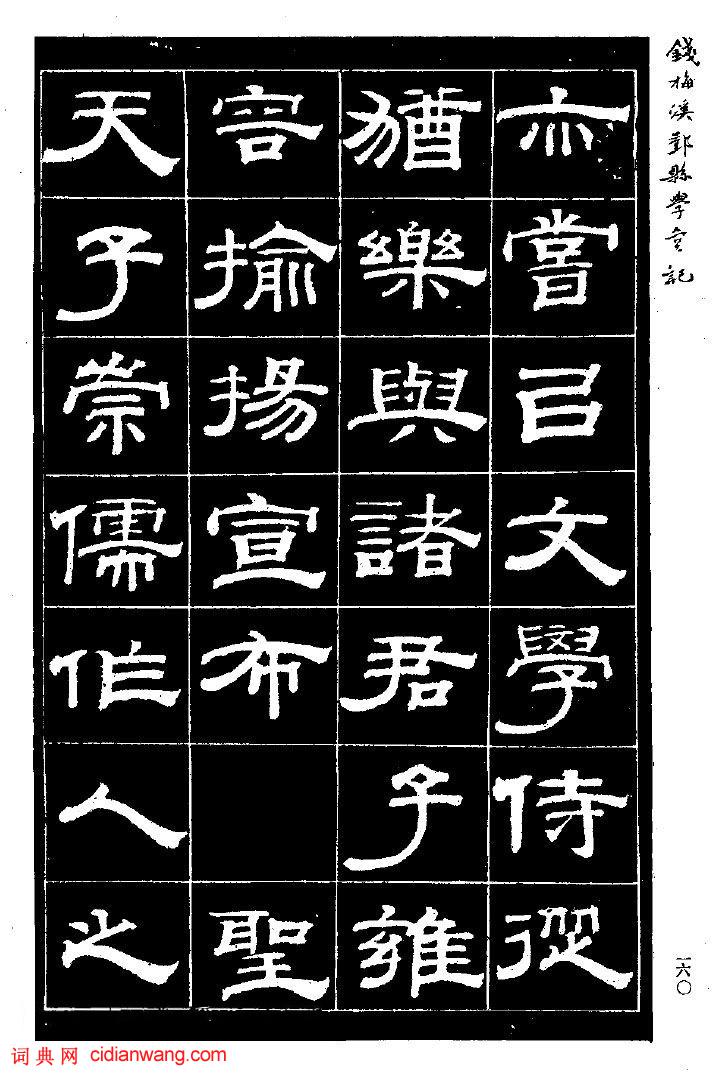 錢梅溪鄞縣學宮記
亦嘗㠯文學侍從
猶樂與諸君子雍
容揄揚宣布 聖
天子崇儒作人之
一六〇
词典网 cidianwang.com